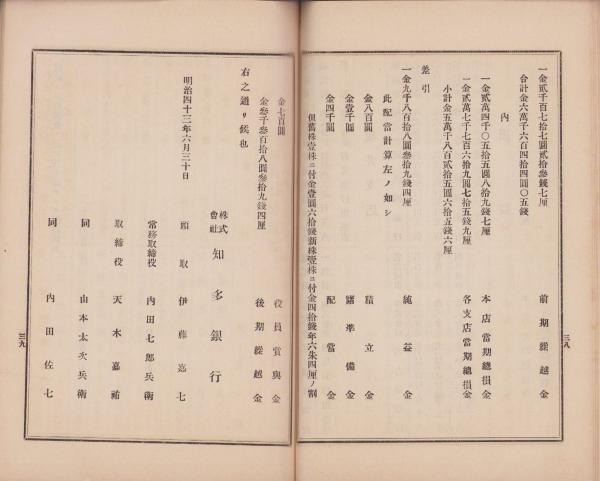 一金貳千百七拾七圓貳拾參錢七厘 前期繰越金
合計金六萬千六百四拾四圓〇五錢
內
一金貳萬四千〇五拾五圓八拾九錢七厘 本店當期總損金
一金貳萬七千七百六拾九圓七拾五錢九厘 各支店當期總損金
小計金五萬千八百貳拾五圓六拾五錢六厘
差引
一金九千八百拾八圓參拾九錢四厘 純益金
此配當計算左ノ如シ
金八百圓 積立金
金壹千圓 諸準備金
金四千圓 配當金
但舊株壹株ニ付金壹圓六拾錢新株壹株ニ付金四拾錢年六朱四厘ノ割
三八
金七百圓 役員賞與金
金參千參百拾八圓參拾九錢四厘 後期繰越金
右之通リ候也
株式會社 知多銀行
明治四十三年六月三十日
頭取 伊藤嘉七
常務取締役 內田七郎兵衛
取締役 天木嘉祐
同 山本太次兵衛
同 內田佐七
三九